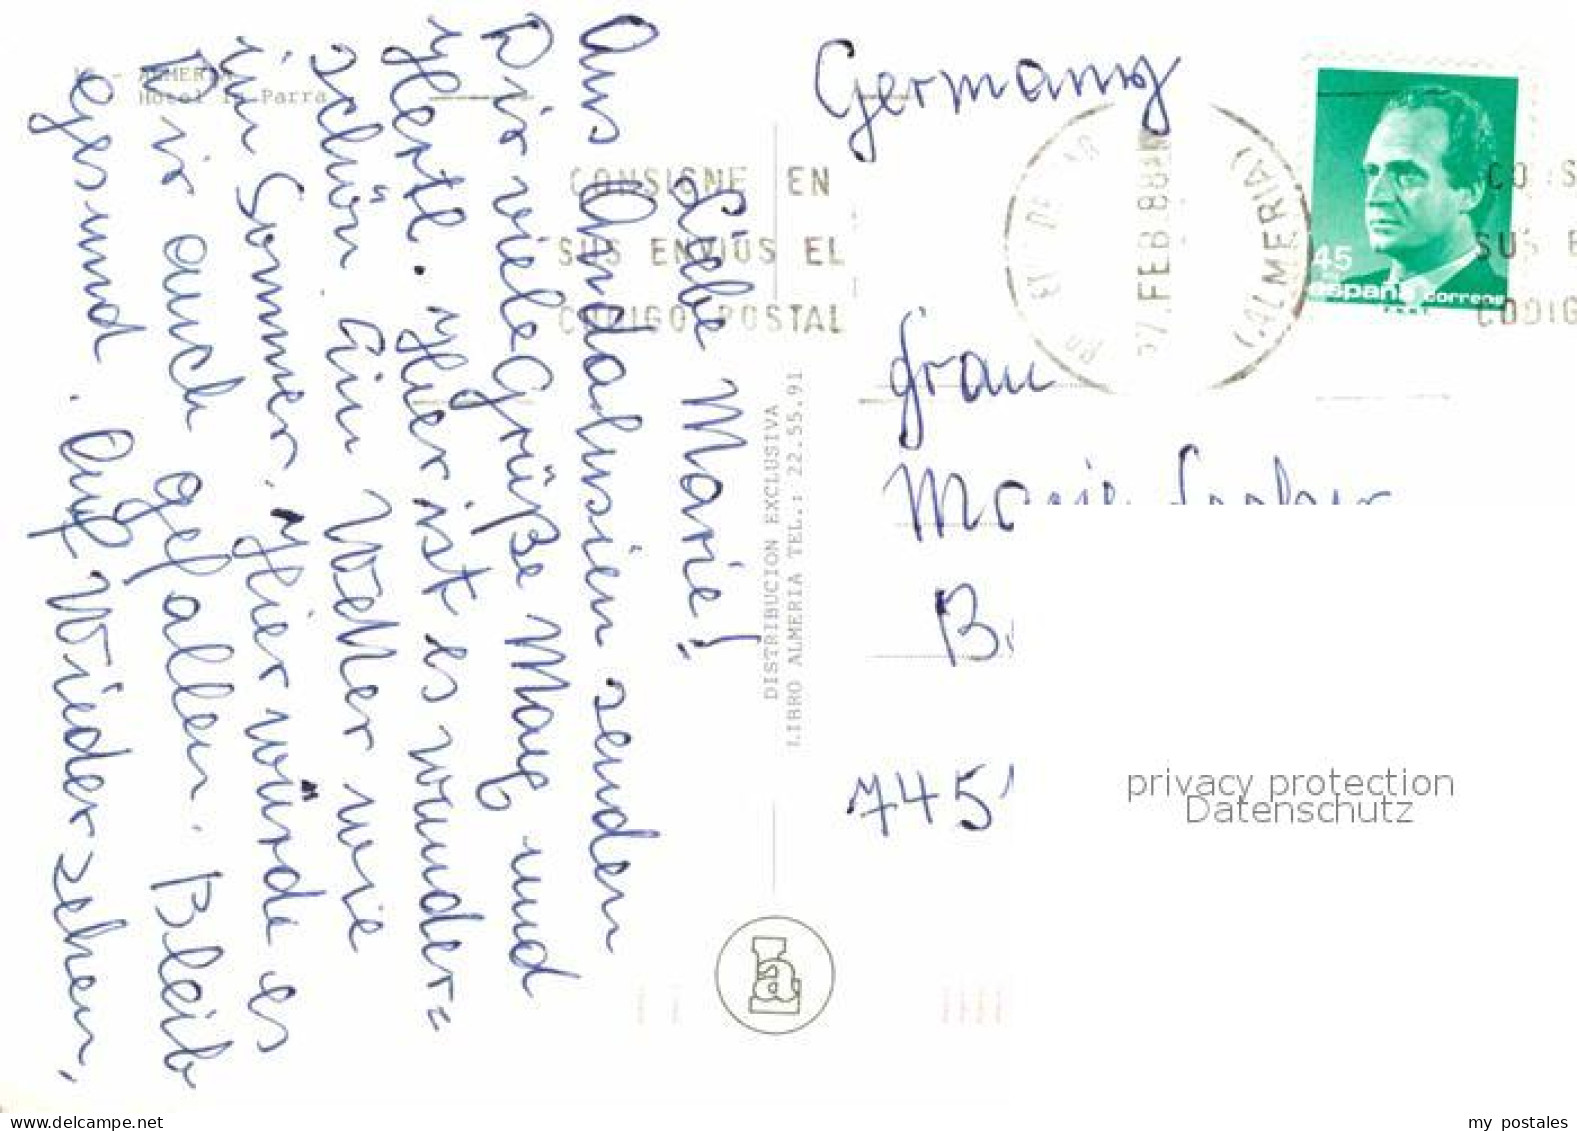 16 - ALMERIA
Hotel la Parra
Liebe Marie!
Aus Andalusien senden
Dir viele Grüße Max und
Hertl. Hier ist es wunder=
schön. Ein Wetter wie
im Sommer. Hier würde es
Dir auch gefallen. Bleib
gesund. Auf Wiedersehen.
DISTRIBUCION EXCLUSIVA
LIBRO ALMERIA TEL.: 22.55.91
CONSIGNE EN
SUS ENVIOS EL
CODIGO POSTAL
Germany
FEB 88
(ALMERIA)
45
españa correos
CONS
SUS E
CODIG
Frau
Marie
745
privacy protection
Datenschutz
la
www.delcampe.net
my_postales